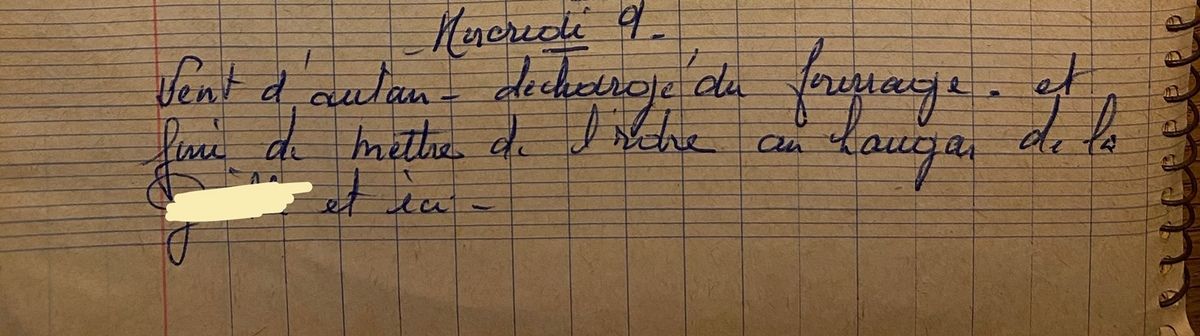 - Mercredi 9 -
Vent d'autan - décharge du fourrage - et
fini de mettre de l'ordre au hangar de la
et ici -